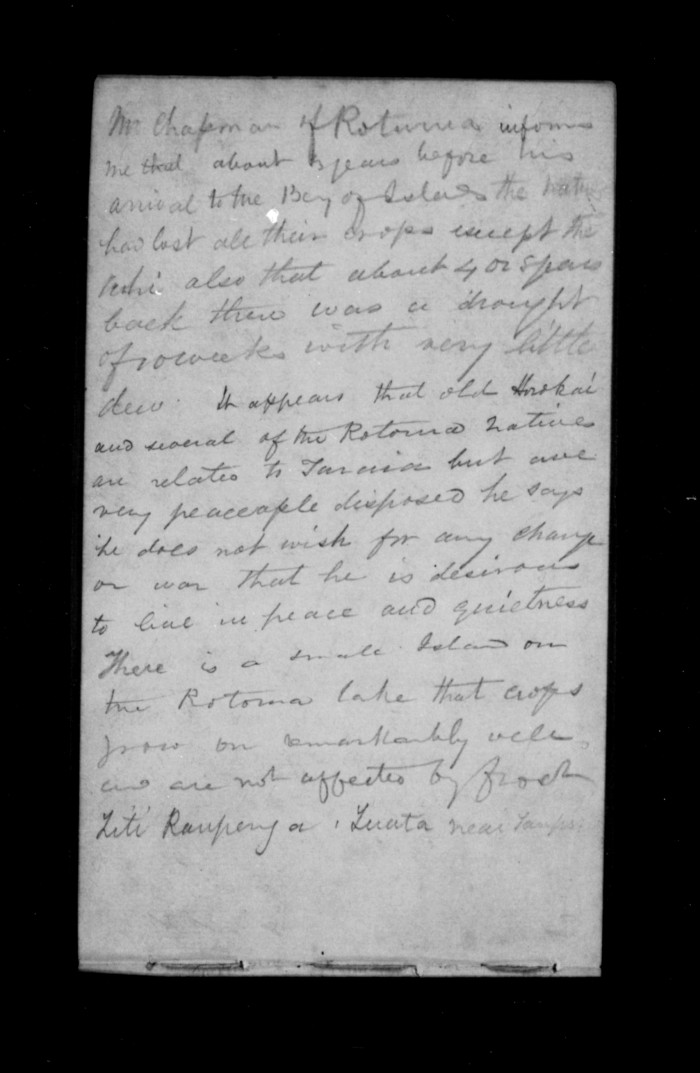 Mr Chapman of Rotorua informs
me that about 3 years before his
arrival to the Bay of Islands the
had lost all their crops except the
also that about 4 or 5 years
back there was a drought
of 10 weeks with very little
dew. It appears that old
and several of the Rotorua Natives
are related to but are
very peaceable disposed he says
he does not wish for any change
or war that he is desirous
to live in peace and quietness
There is a small Island on
the Rotorua lake that crops
grow on remarkably well
and are not affected by frost
Titi Raupenga near